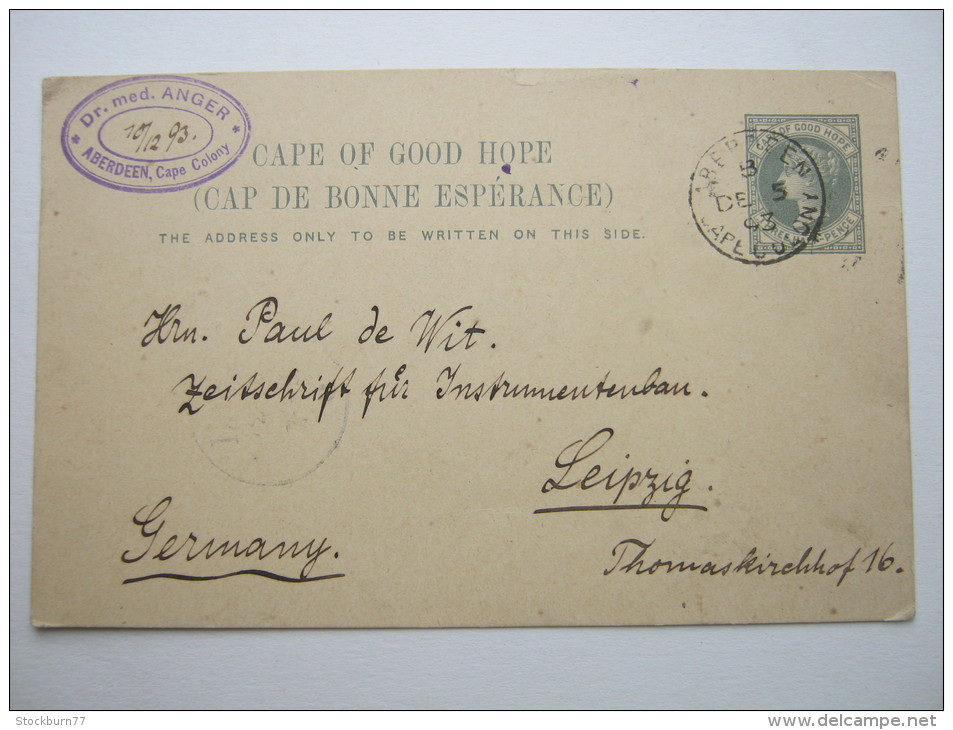 * Dr. med. ANGER *
10/12 93.
ABERDEEN, Cape Colony
CAPE OF GOOD HOPE
(CAP DE BONNE ESPÉRANCE)
THE ADDRESS ONLY TO BE WRITTEN ON THIS SIDE.
CAPE OF GOOD HOPE
PENCE
DE
Hrn. Paul de Wit.
Zeitschrift für Instrumentenbau.
Leipzig.
Germany.
Thomaskirchhof 16.
Stockburn77
www.delcampe.net